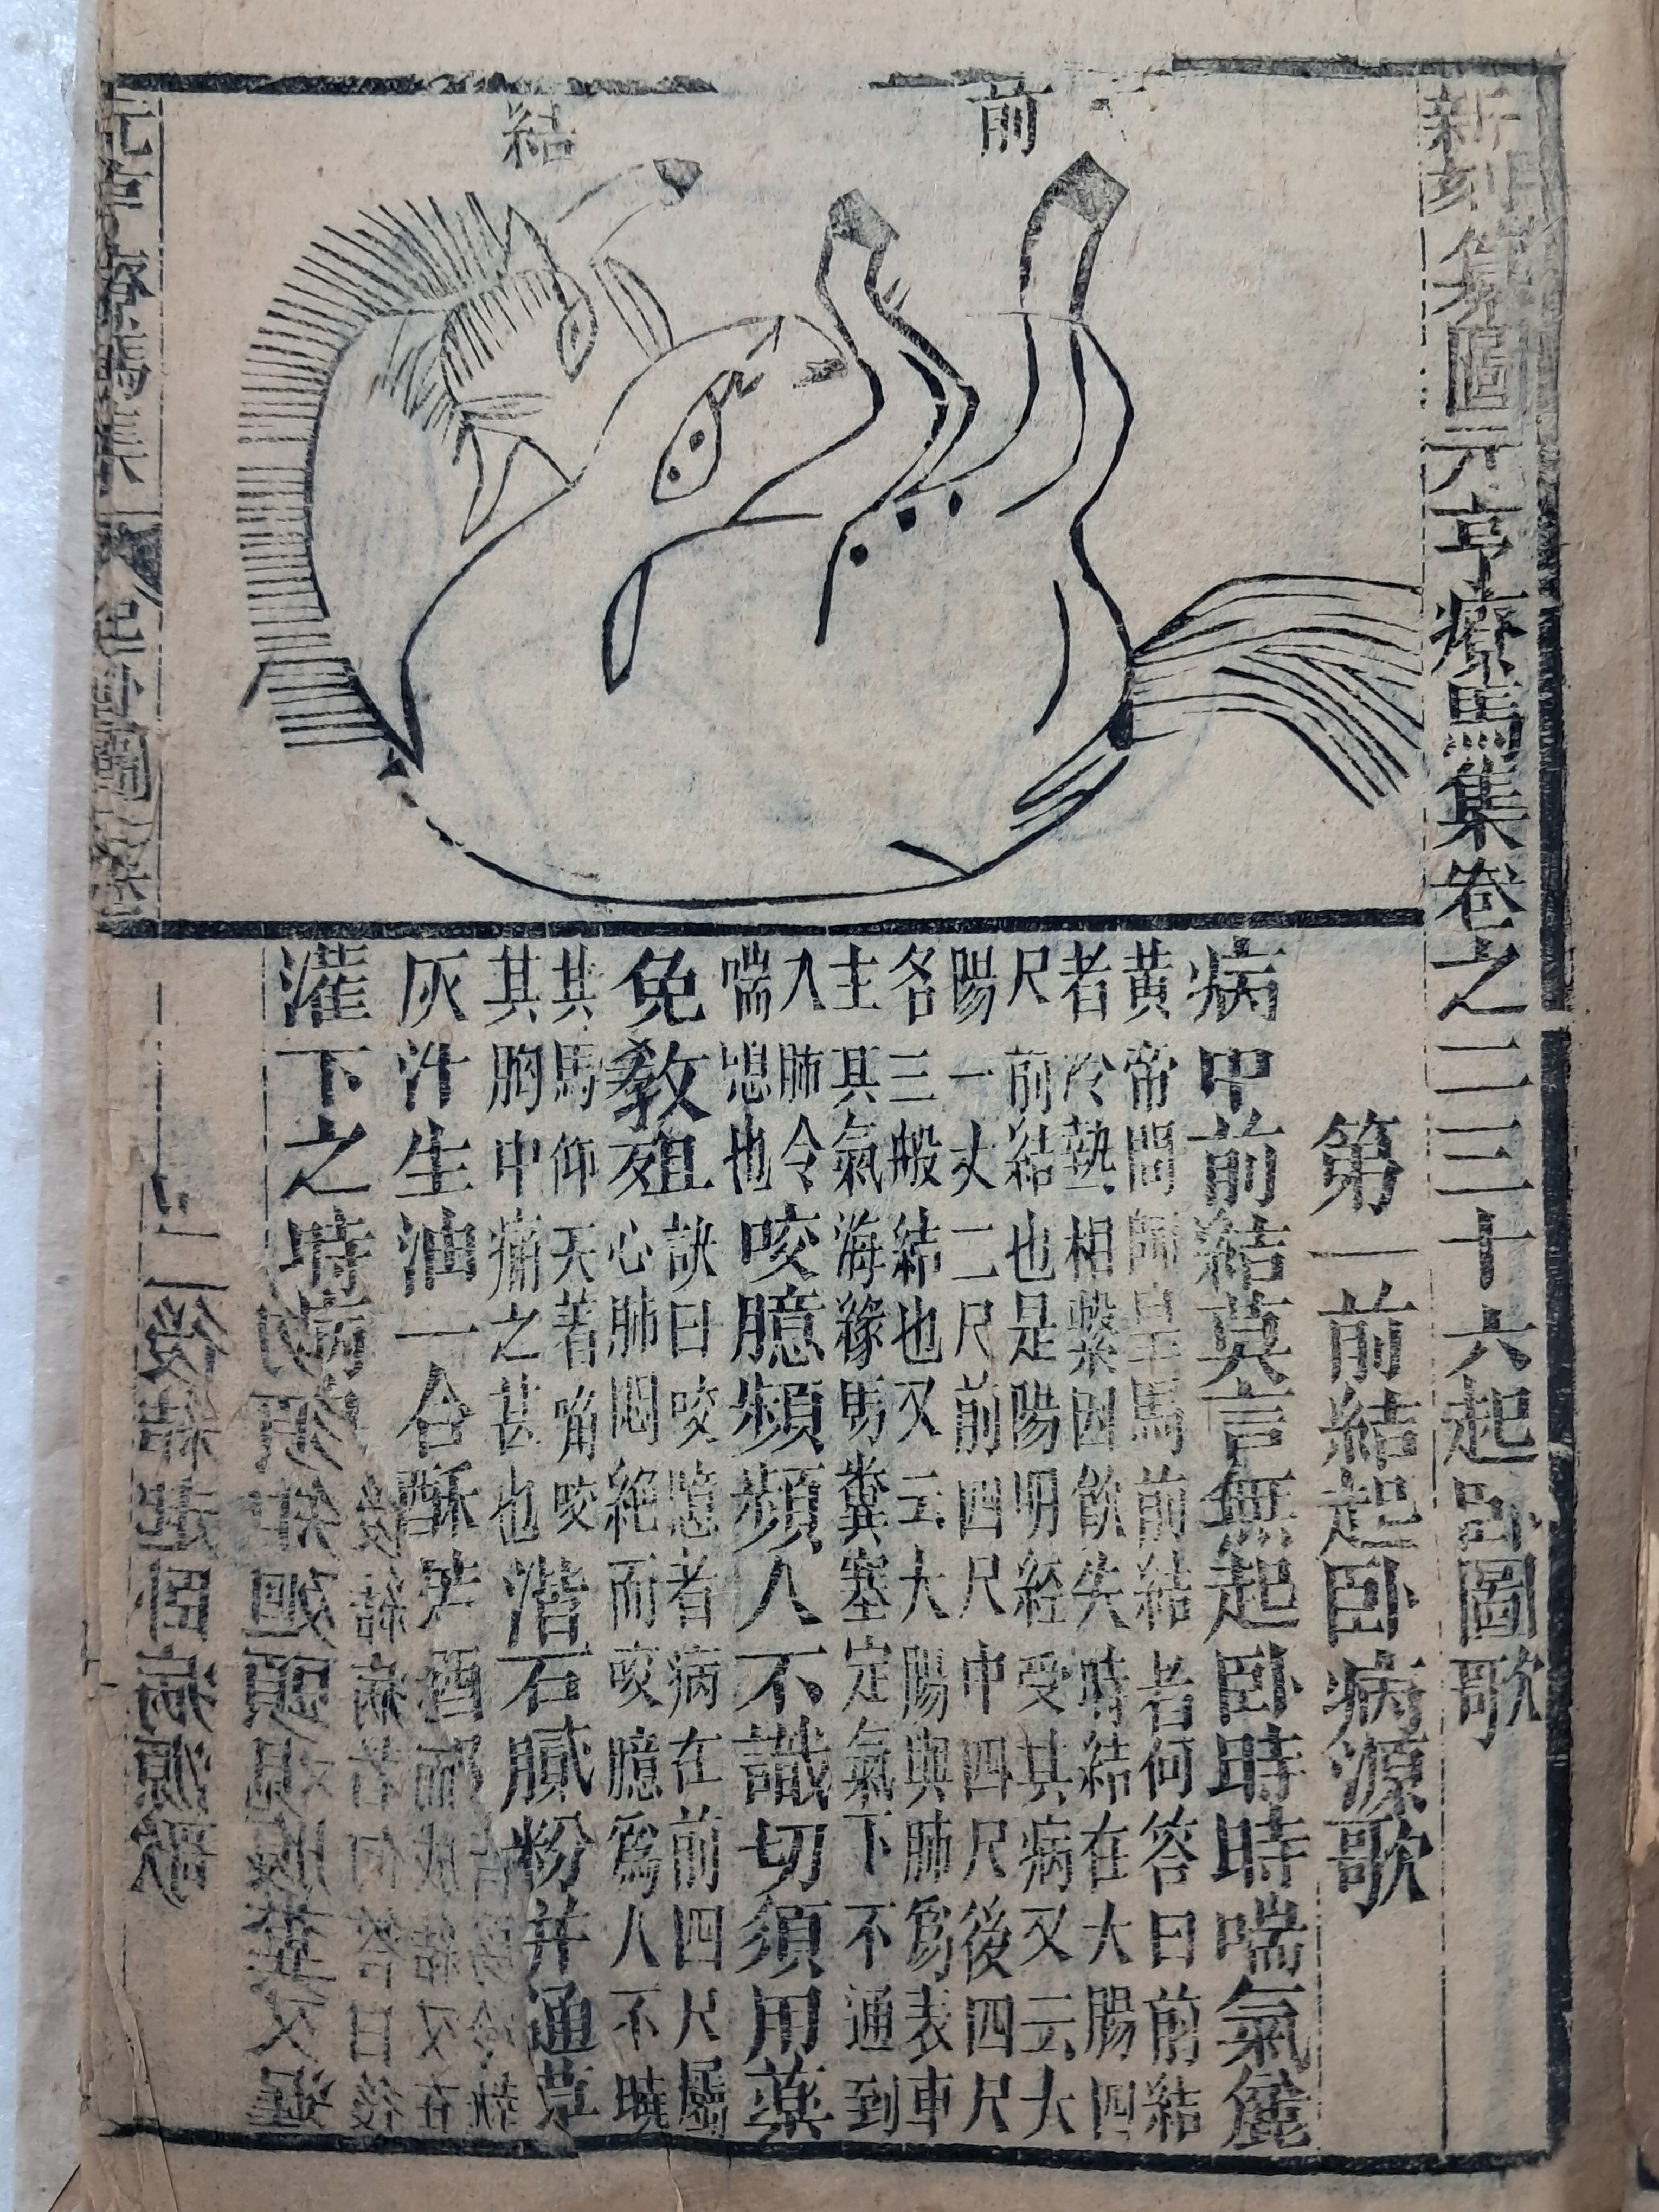 新刻纂圖元亨療馬集卷之二三十六起臥圖歌
前
結
第一前結起臥病源歌
病中前結莫言無起臥時時喘氣麄
黃帝問師皇馬前結者何答曰前結
者冷熱相擊因飲失時結在大腸四
尺前結也是陽明經受其病又云大
陽一丈二尺前四尺中四尺後四尺
各三般結也又云大腸與肺爲表車
主其氣海緣馬糞塞定氣下不通到
入肺令
喘息也
咬臆頻頻人不識切須用藥
免教殂
訣曰咬臆者病在前四尺屬
心肺悶絕而咬臆爲人不曉
其馬仰天着嘴咬
其胸中痛之甚也
滑石膩粉并通草
灰汁生油一合酥
灌下之時病
後結病者何答曰後
二後結起臥病源歌
元亨療馬集